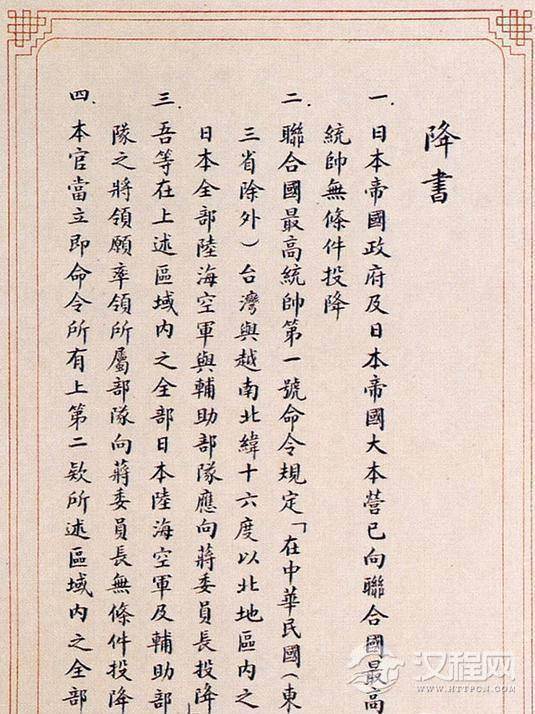 降書
一.日本帝國政府及日本帝國大本營已向聯合國最高
統帥無條件投降
二.聯合國最高統帥第一號命令規定「在中華民國(東
三省除外)台灣與越南北緯十六度以北地區內之
日本全部陸海空軍與輔助部隊應向蔣委員長投降」
三.吾等在上述區域內之全部日本陸海空軍及輔助部
隊之將領願率領所屬部隊向蔣委員長無條件投降
四.本官當立即命令所有上第二欵所述區域內之全部
汉程网
WWW.HTTPCN.COM